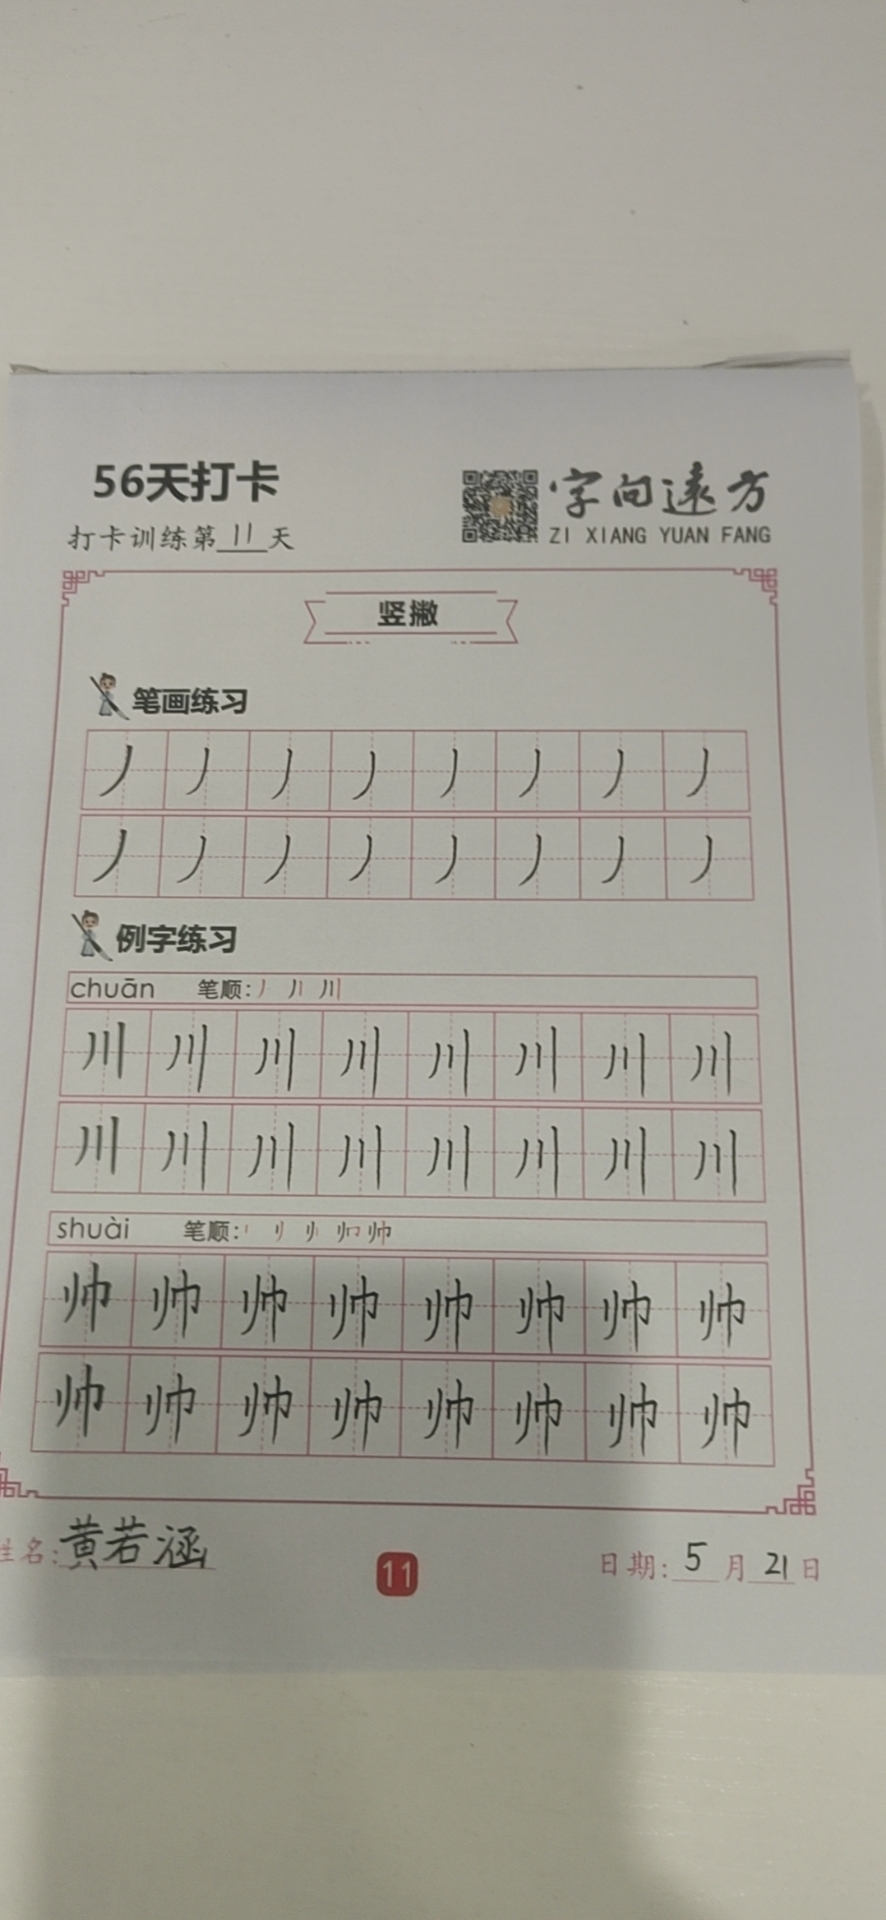 56天打卡
字向遠方
打卡训练第11天
ZI XIANG YUAN FANG
竖撇
笔画练习
丿 丿 丿 丿 丿 丿 丿 丿
丿 丿 丿 丿 丿 丿 丿 丿
例字练习
chuān 笔顺: 丿 丿丨 川
川 川 川 川 川 川 川 川
川 川 川 川 川 川 川 川
shuài 笔顺: 帅
帅 帅 帅 帅 帅 帅 帅 帅
帅 帅 帅 帅 帅 帅 帅 帅
姓名: 黄若涵
11
日期: 5 月 21 日